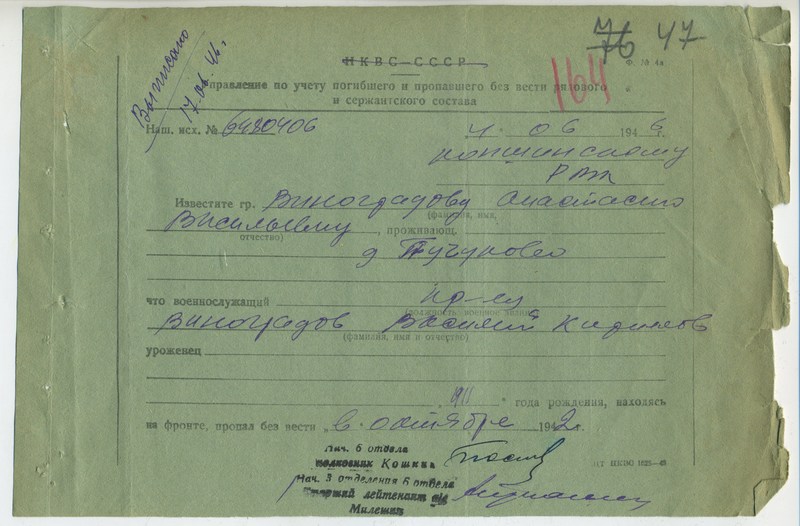 76 47
Выписано
17.06.46г.
НКВС-СССР
Ф. № 4а
164
Управление по учету погибшего и пропавшего без вести рядового
и сержантского состава
Наш. исх. № 6480406
4. 06 1946г.
РВК
Известите гр. Виноградову Анастасию
(фамилия, имя,
Васильевну , проживающ.
отчество)
д
что военнослужащий кр-ец
(должность военное звание)
Виноградов Василий
(фамилия, имя и отчество)
уроженец
1911 года рождения, находясь
на фронте, пропал без вести в октябре 1942г.
Нач. 6 отдела
полковник Кошкин
Нач. 3 отделения 6 отдела
Старший лейтенант а/с
Милешин